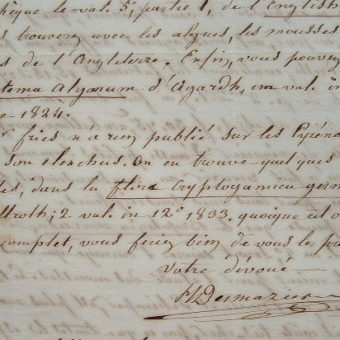 hèque le vol. 5, partie 1, de l'English
trouverez avec les algues, les mousses
s de l'Angleterre. Enfin, vous pouvez
tema algarum d'Agardh, un vol. in
e - 1824.
fries n'a rien publié sur les Pyréno
son elenchus. On en trouve quelques
les, dans la flora cryptogamica germ
llroth; 2 vol. in 12° 1833. quoique cet o
complet, vous feriez bien de vous le pro
votre dévoué
Desmazieres